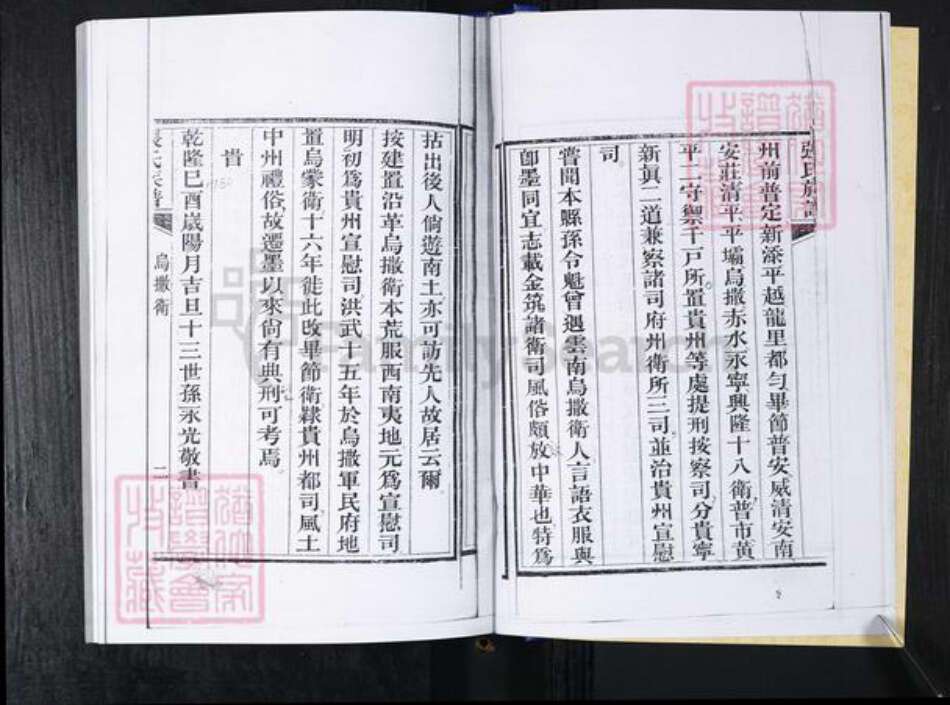 張氏族譜
州前普定新添平越龍里都勻畢節普安威清安南
安莊清平平壩烏撒赤水永寧興隆十八衛普市黃
平二守禦千戶所置貴州等處提刑按察司分貴寧
新眞二道兼察諸司府州衛所三司並治貴州宣慰
司
嘗聞本縣孫令魁曾遇雲南烏撒衛人言語衣服與
卽墨同宜志載金筑諸衛司風俗頗放中華也特爲
拈出後人倘遊南土亦可訪先人故居云爾
按建置沿革烏撒衛本荒服西南夷地元爲宣慰司
明初爲貴州宣慰司洪武十五年於烏撒軍民府地
置烏蒙衛十六年徙此改畢節衛隸貴州都司風土
中州禮俗故遷墨以來尙有典刑可考焉
旹
乾隆巳酉歲陽月吉旦十三世孫永光敬書
張氏族譜
烏撒衛
二
FamilySearch